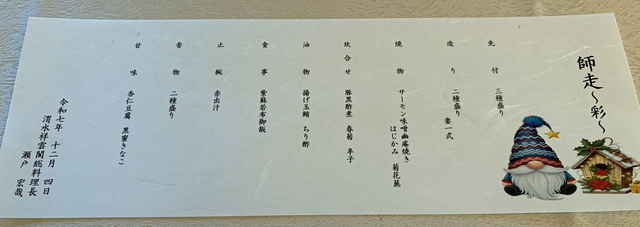 師走〜彩〜
先付 三種盛り
造り 二種盛り 妻一式
焼物 サーモン味噌幽庵焼き
はじかみ 菊花蕪
炊合せ 豚黒酢煮 春菊 辛子
油物 揚げ玉鯑 ちり酢
食事 紫蘇若布御飯
止椀 赤出汁
香物 二種盛り
甘味 杏仁豆腐 黒蜜きなこ
令和七年 十二月 四日
渭水祥雲閣総料理長
瀬戸 宏哉